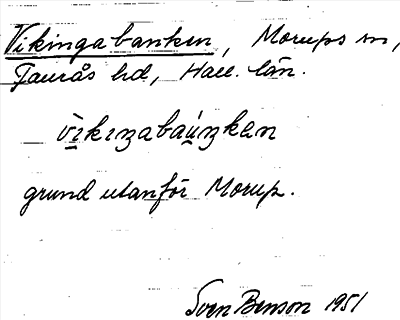 Vikingabanken, Morups sn,
Faurås hd, Hall. län.
vikiŋabaŋken
grund utanför Morup.
Sven Benson 1951